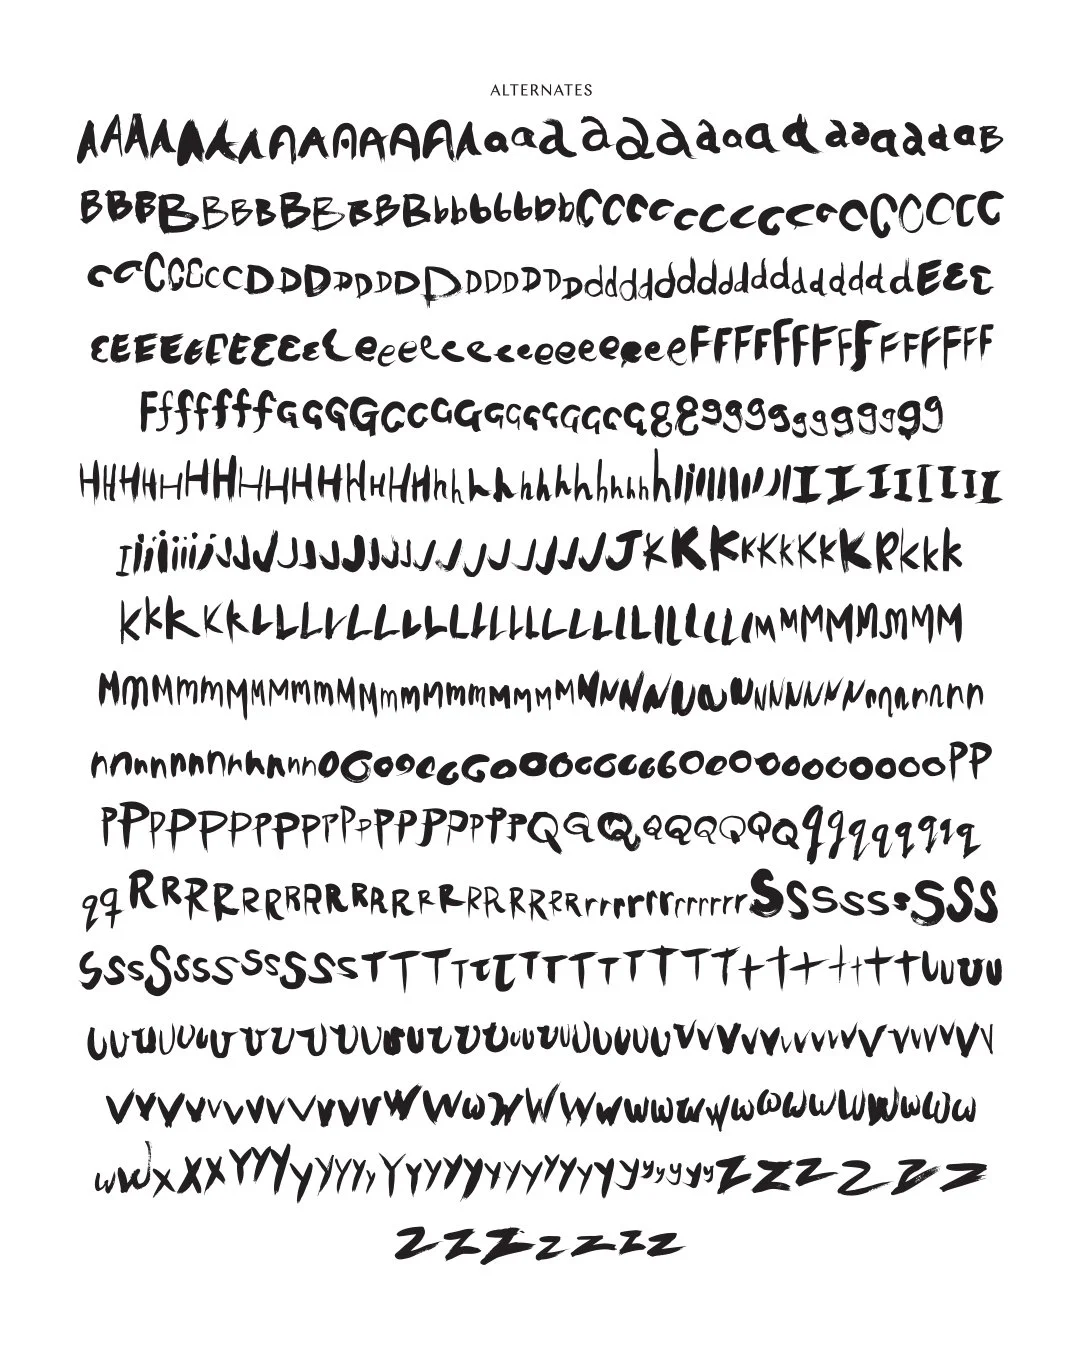 ALTERNATES
AAAAAAAAAAAAAAAAaaaaaaaaaaaaaaaaaB
BBBBBBBBBBBBBBbbbbbbbCCCCCCCCCCCCCCCCCC
CCCCCCCCDDDDDDDDDDDDDDddddddddddddddddddEEE
EEEEEEEEEEEeeeeeeeeeeeeeeeFFFFFFFFFFFFFFF
FffffffGGGGGGGGGGGGGGGGggggggggggggg
HHHHHHHHHHHHHHHhhhhhhhhhhhhhlillllllllIIIIIIII
IiiiiiiJJJJJJJJJJJJJJJJJJJJJJKKKKKKKKKKKkkk
kkkkkLLLLLLLLLLLLLLLLLLLLLLMMMMMMMMM
MmMmmMMMMmmMMmmMMmmmMMMMNNNNNNNNNNNNNNNNnnnnnn
nnnnnnnnnnnnOOOOOOOOOOOOOOOOOOOOOOOOOOOOOPP
PPPPPPPPPPPPPPPPPPPPQQQQQQQQQQqqqqqqqq
qqRRRRRRRRRRRRRRRRRRRRRrrrrrrrrrrrrSSSSSSSSSS
SSSSSSSSSSSSTTTTTTTTTTTTTTTtttttttUUUU
UUUUUUUUUUUUUUUUUUUUUUUUUUUVVVVVVVVVVVVVVVV
VVVVVVVVVVVVWWWWWWWWWWWWWWWWWWWWWWW
wwwXXXYYYYYYYYYYYYYYYYYYYYyyyyyZZZZZZ
ZZZZZZZ